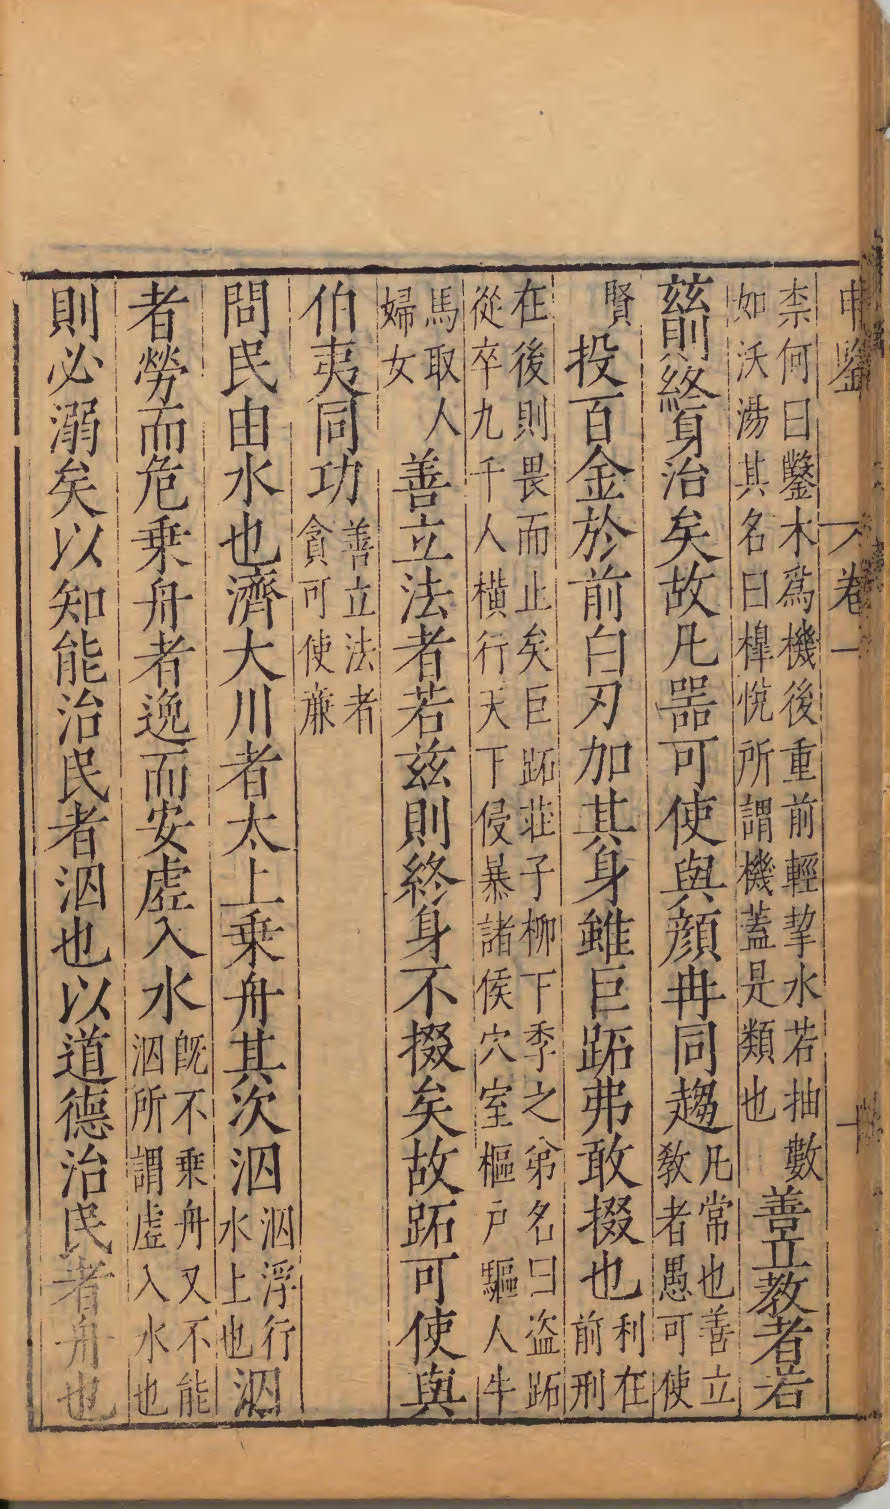 申鑒 卷一 十
柰何曰鑿木爲機後重前輕挈水若抽數
如沃湯其名曰槹悅所謂機蓋是類也
善立教者若
茲則終身治矣故凡器可使與顏冉同趨
凡常也善立
教者愚可使
賢
投百金於前白刃加其身雖巨跖弗敢掇也
利在
前刑
在後則畏而止矣巨跖莊子柳下季之弟名曰盜跖
從卒九千人橫行天下侵暴諸侯穴室樞戶驅人牛
馬取人
婦女
善立法者若茲則終身不掇矣故跖可使與
伯夷同功
善立法者
貪可使廉
問民由水也濟大川者太上乗舟其次泅
泅浮行
水上也
泅
者勞而危乗舟者逸而安虛入水
旣不乗舟又不能
泅所謂虛入水也
則必溺矣以知能治民者泅也以道德治民者舟也